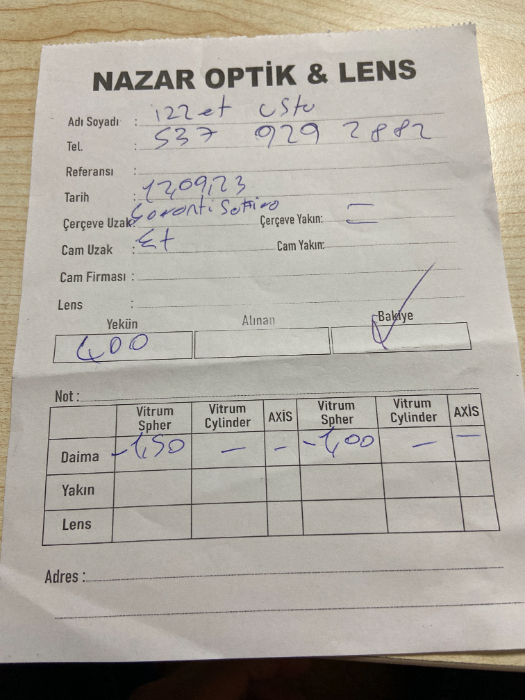 NAZAR OPTİK & LENS
Adı Soyadı : izzet usta
Tel. : 537 929 2882
Referansı :
Tarih : 12,09,23
Çerçeve Uzak: Çerçeve Yakın: =
Cam Uzak : Cam Yakın:
Cam Firması :
Lens :
Yekün Alınan Bakiye
400 ✓
Not :
Vitrum Spher Vitrum Cylinder AXİS Vitrum Spher Vitrum Cylinder AXİS
Daima -1,50 - - -1,00 - -
Yakın
Lens
Adres :